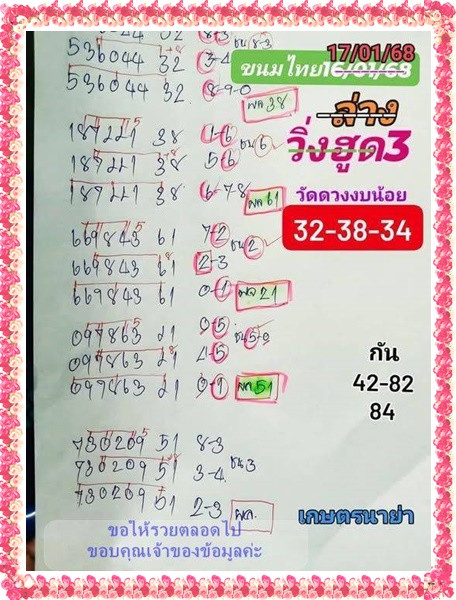 17/01/68
ขนมไทย16/01/68
ล่าง
วิ่งฮูด3
วัดดวงงบน้อย
32-38-34
กัน
42-82
84
เกษตรนาย่า
536044 32 3-4
536044 32 8-9-0
ผล 38
187221 38 1-6
187221 38 5-6 ชน 6
187221 38 6-7-8 ผล 61
669843 61 7-2
669843 61 2-3 ชน 2
669843 61 0-1 ผล 21
097863 21 0-5
097863 21 4-5 ชน 5-0
097863 21 0-1 ผล 51
730209 51 8-3
730209 51 3-4 ชน 3
730209 51 2-3 ผล.
ขอให้รวยตลอดไป
ขอบคุณเจ้าของข้อมูลค่ะ